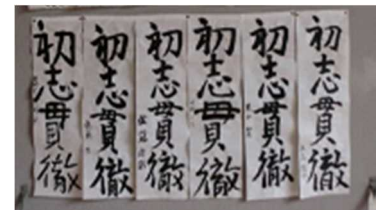 初志貫徹
初志貫徹
初志貫徹
初志貫徹
初志貫徹
初志貫徹